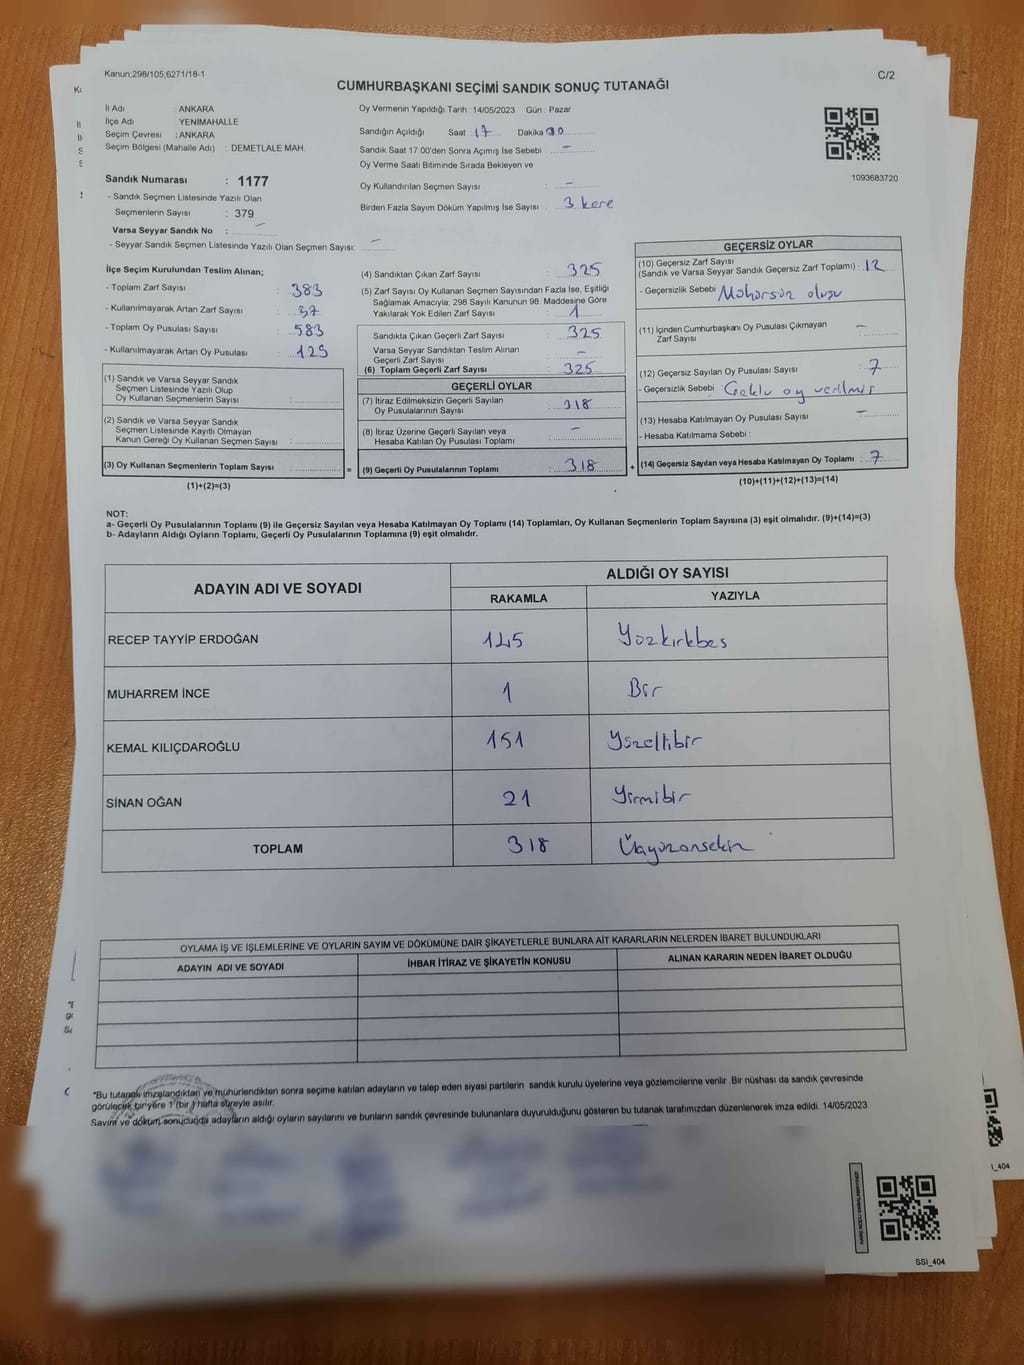 Kanun;298/105;6271/18-1
C/2
CUMHURBAŞKANI SEÇİMİ SANDIK SONUÇ TUTANAĞI
İl Adı : ANKARA
İlçe Adı : YENİMAHALLE
Seçim Çevresi : ANKARA
Seçim Bölgesi (Mahalle Adı) : DEMETLALE MAH.
Sandık Numarası : 1177
- Sandık Seçmen Listesinde Yazılı Olan
Seçmenlerin Sayısı : 379
Varsa Seyyar Sandık No : –
- Seyyar Sandık Seçmen Listesinde Yazılı Olan Seçmen Sayısı: –
Oy Vermenin Yapıldığı Tarih : 14/05/2023 Gün : Pazar
Sandığın Açıldığı Saat 17 Dakika 00
Sandık Saat 17.00'den Sonra Açımış İse Sebebi : –
Oy Verme Saati Bitiminde Sırada Bekleyen ve
Oy Kullandırılan Seçmen Sayısı : –
Birden Fazla Sayım Döküm Yapılmış İse Sayısı : 3 kere
1093683720
İlçe Seçim Kurulundan Teslim Alınan;
- Toplam Zarf Sayısı : 383
- Kullanılmayarak Artan Zarf Sayısı : 57
- Toplam Oy Pusulası Sayısı : 583
- Kullanılmayarak Artan Oy Pusulası : 129
(1) Sandık ve Varsa Seyyar Sandık
Seçmen Listesinde Yazılı Olup
Oy Kullanan Seçmenlerin Sayısı :
(2) Sandık ve Varsa Seyyar Sandık
Seçmen Listesinde Kayıtlı Olmayan
Kanun Gereği Oy Kullanan Seçmen Sayısı :
(3) Oy Kullanan Seçmenlerin Toplam Sayısı : =
(1)+(2)=(3)
(4) Sandıktan Çıkan Zarf Sayısı : 325
(5) Zarf Sayısı Oy Kullanan Seçmen Sayısından Fazla İse, Eşitliği
Sağlamak Amacıyla; 298 Sayılı Kanunun 98. Maddesine Göre
Yakılarak Yok Edilen Zarf Sayısı : 1
Sandıkta Çıkan Geçerli Zarf Sayısı : 325
Varsa Seyyar Sandıktan Teslim Alınan
Geçerli Zarf Sayısı : –
(6) Toplam Geçerli Zarf Sayısı : 325
GEÇERLİ OYLAR
(7) İtiraz Edilmeksizin Geçerli Sayılan
Oy Pusulalarının Sayısı : 318
(8) İtiraz Üzerine Geçerli Sayılan veya
Hesaba Katılan Oy Pusulası Toplamı : –
(9) Geçerli Oy Pusulalarının Toplamı : 318 +
GEÇERSİZ OYLAR
(10) Geçersiz Zarf Sayısı
(Sandık ve Varsa Seyyar Sandık Geçersiz Zarf Toplamı) : 12
- Geçersizlik Sebebi : Mühürsüz oluşu
(11) İçinden Cumhurbaşkanı Oy Pusulası Çıkmayan
Zarf Sayısı : –
(12) Geçersiz Sayılan Oy Pusulası Sayısı : 7
- Geçersizlik Sebebi : oy verilmiş
(13) Hesaba Katılmayan Oy Pusulası Sayısı : –
- Hesaba Katılmama Sebebi :
(14) Geçersiz Sayılan veya Hesaba Katılmayan Oy Toplamı : 7
(10)+(11)+(12)+(13)=(14)
NOT:
a- Geçerli Oy Pusulalarının Toplamı (9) ile Geçersiz Sayılan veya Hesaba Katılmayan Oy Toplamı (14) Toplamları, Oy Kullanan Seçmenlerin Toplam Sayısına (3) eşit olmalıdır. (9)+(14)=(3)
b- Adayların Aldığı Oyların Toplamı, Geçerli Oy Pusulalarının Toplamına (9) eşit olmalıdır.
ADAYIN ADI VE SOYADI
ALDIĞI OY SAYISI
RAKAMLA YAZIYLA
RECEP TAYYİP ERDOĞAN 145 Yüzkırkbeş
MUHARREM İNCE 1 Bir
KEMAL KILIÇDAROĞLU 151 Yüzellibir
SİNAN OĞAN 21 Yirmibir
TOPLAM 318 Üçyüzonsekiz
OYLAMA İŞ VE İŞLEMLERİNE VE OYLARIN SAYIM VE DÖKÜMÜNE DAİR ŞİKAYETLERLE BUNLARA AİT KARARLARIN NELERDEN İBARET BULUNDUKLARI
ADAYIN ADI VE SOYADI İHBAR İTİRAZ VE ŞİKAYETİN KONUSU ALINAN KARARIN NEDEN İBARET OLDUĞU
*Bu tutanak imzalandıktan ve mühürlendikten sonra seçime katılan adayların ve talep eden siyasi partilerin sandık kurulu üyelerine veya gözlemcilerine verilir .Bir nüshası da sandık çevresinde
görülecek bir yere 1 (bir ) hafta süreyle asılır.
Sayım ve döküm sonucunda adayların aldığı oyların sayılarını ve bunların sandık çevresinde bulunanlara duyurulduğunu gösteren bu tutanak tarafımızdan düzenlenerek imza edildi. 14/05/2023
KARE KODU KARALAMAYINIZ!
SSI_404